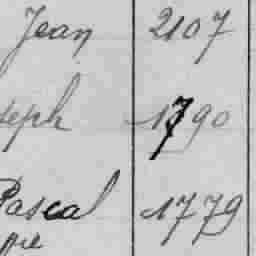 Jean 2107
seph 1790
Pascal 1779